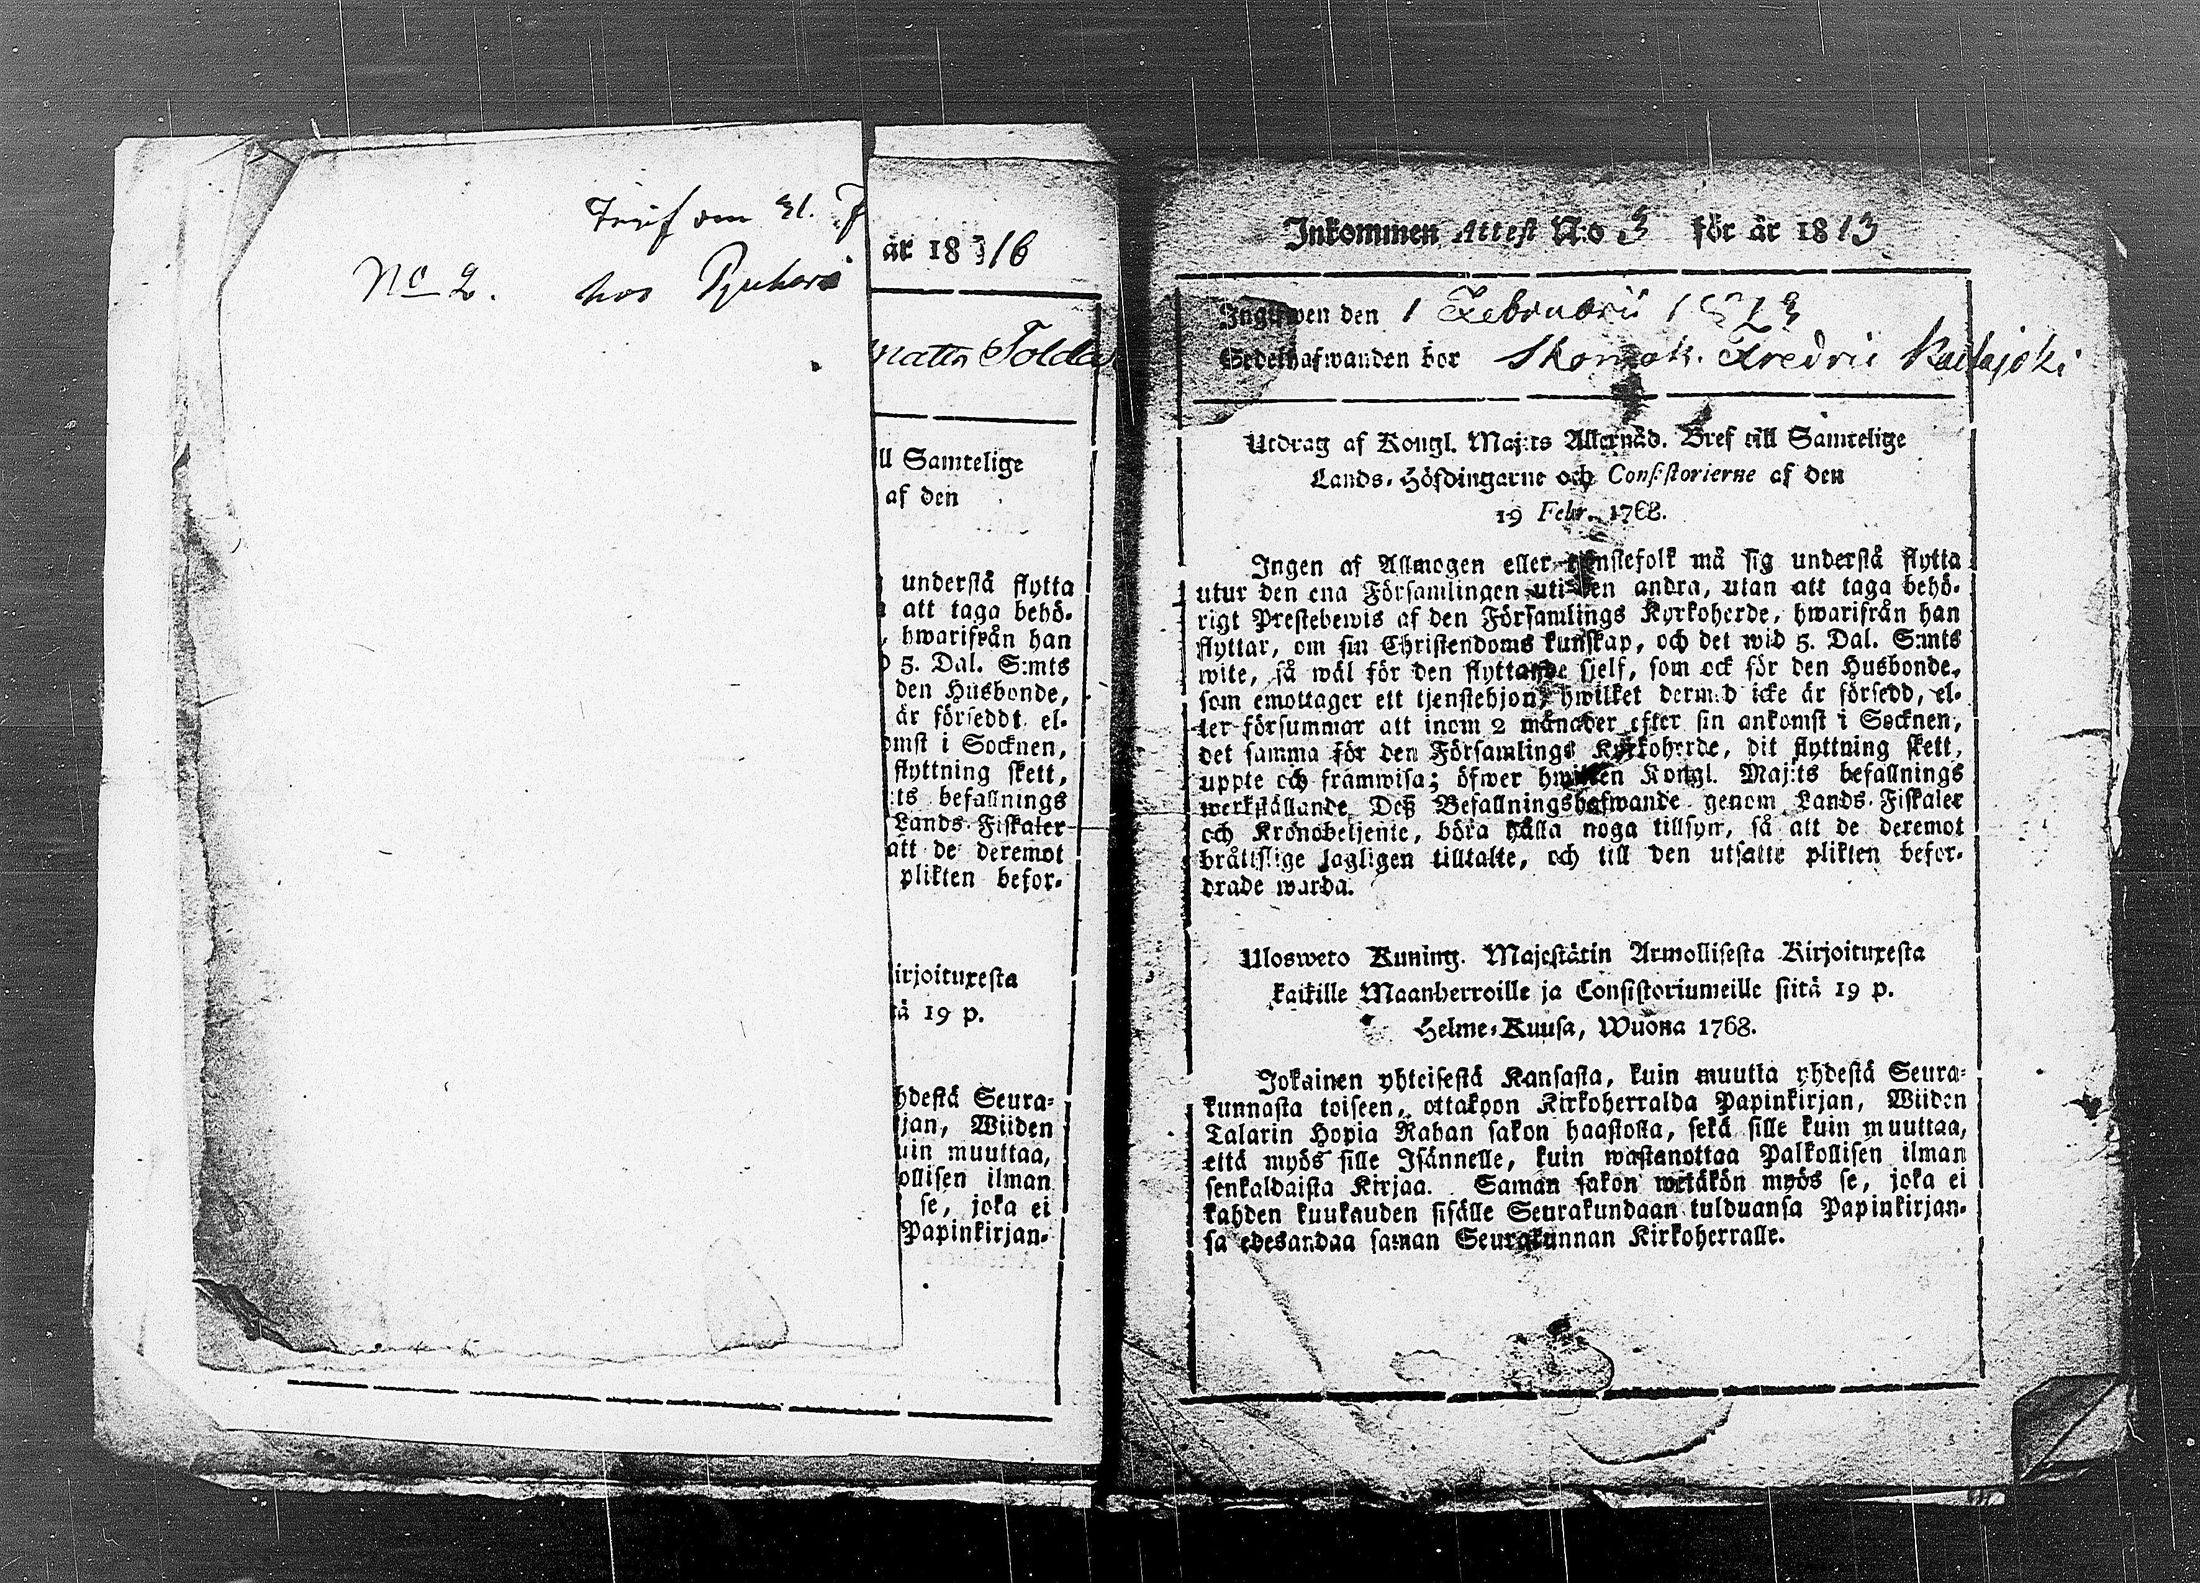 No 2.
hos
är 18 16
ll Samtelige
af den
understå flytta
att taga behö-
, hwarifrån han
5. Dal. S:mts
den Husbonde,
är försedd, el-
omst i Socknen,
flyttning skett,
:ts befallnings
Lands-Fiskaler
att de deremot
plikten befor-
irjoituxesta
tä 19 p.
hdestä Seura-
jan, Wiiden
uin muuttaa,
ollisen ilman
se, joka ei
Papinkirjan-
Inkommen Attest N:o 3 för år 1813
Ingifwen den 1 Februarii 1813
Sedelhafwanden bor Skomak. Fredric
Utdrag af Kongl. Maj:ts Allernåd. Bref till Samtelige
Lands-Höfdingarne och Consistorierne af den
19 Febr. 1768.
Ingen af Allmogen eller tjenstefolk må sig understå flytta
utur den ena Församlingen uti den andra, utan att taga behö-
rigt Prestebewis af den Församlings Kyrkoherde, hwarifrån han
flyttar, om sin Christendoms kunskap, och det wid 5. Dal. S:mts
wite, så wäl för den flyttande sjelf, som ock för den Husbonde,
som emottager ett tjenstehjon, hwilket dermed icke är försedd, el-
ler försummar att inom 2 månader efter sin ankomst i Socknen,
det samma för den Församlings Kyrkoherde, dit flyttning skett,
uppte och framwisa; öfwer hwilken Kongl. Maj:ts befallnings
werkställande Deß Befallningshafwande genom Lands-Fiskaler
och Kronobetjente, böra hålla noga tillsyn, så att de deremot
bråttslige lagligen tilltalte, och till den utsatte plikten befor-
drade warda.
Ulosweto Kuning. Majestätin Armollisesta Kirjoituxesta
kaikille Maanherroille ja Consistoriumeille siitä 19 p.
Helme-Kuusa, Wuona 1768.
Jokainen yhteisestä Kansasta, kuin muutta yhdestä Seura-
kunnasta toiseen, ottakoon Kirkoherralda Papinkirjan, Wiiden
Talarin Hopia Rahan sakon haastolla, sekä sille kuin muuttaa,
että myös sille Isännelle, kuin wastanottaa Palkollisen ilman
senkaldaista Kirjaa. Saman sakon wetäkön myös se, joka ei
kahden kuukauden sisälle Seurakundaan tulduansa Papinkirjan-
sa edesandaa saman Seurakunnan Kirkoherralle.